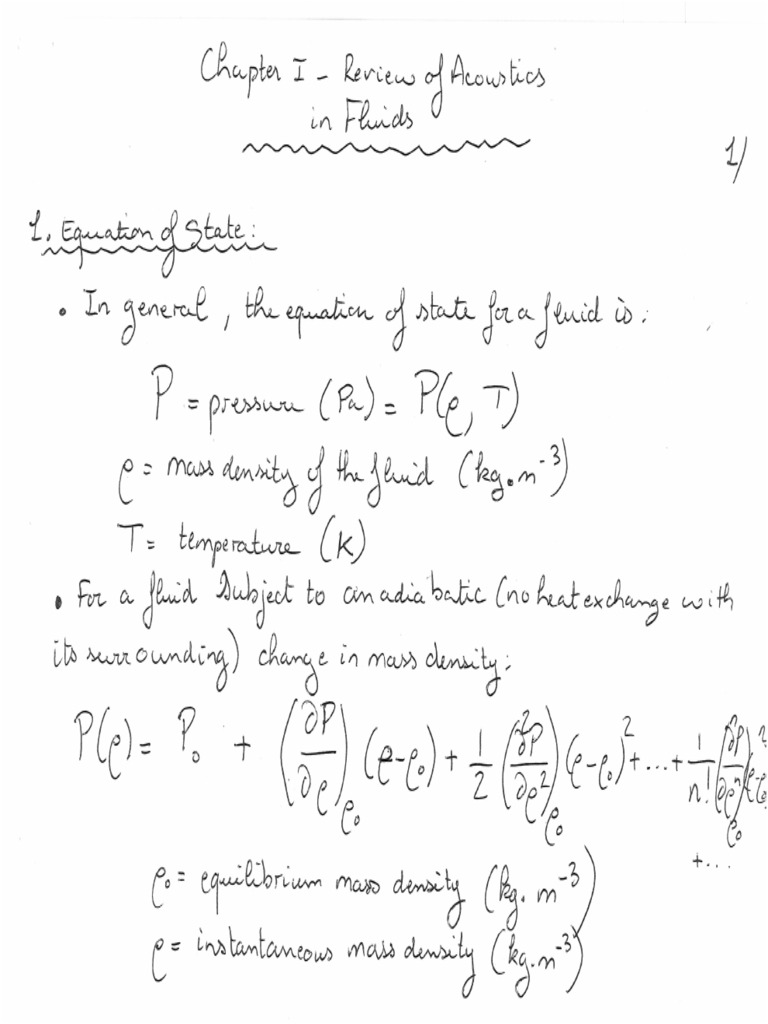 Chapter I - Review of Acoustics
in Fluids
1/
1. Equation of State:
• In general, the equation of state for a fluid is:
P = pressure (Pa) = P(ρ, T)
ρ = mass density of the fluid (kg.m⁻³)
T = temperature (K)
• For a fluid subject to an adiabatic (no heat exchange with
its surrounding) change in mass density:
P(ρ) = P₀ + (∂P/∂ρ)ρ₀ (ρ-ρ₀) + 1/2 (∂²P/∂ρ²)ρ₀ (ρ-ρ₀)² + ... + 1/n! (∂ⁿP/∂ρⁿ)ρ₀ (ρ-ρ₀
+ ...
ρ₀ = equilibrium mass density (kg.m⁻³)
ρ = instantaneous mass density (kg.m⁻³)